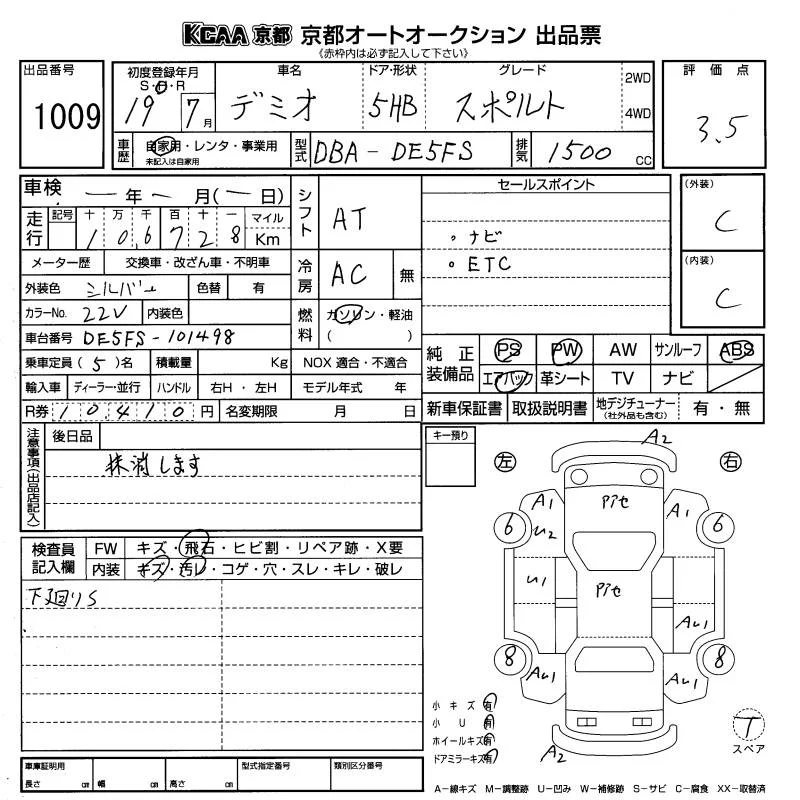 KCAA 京都 京都オートオークション 出品票
《赤枠内は必ず記入して下さい》
出品番号
1009
初度登録年月
S・H・R
19 7月
車名
デミオ
ドア・形状
5HB
グレード
スポルト
2WD
4WD
評価点
3.5
車歴
自家用・レンタ・事業用
未記入は自家用
型式
DBA-DE5FS
排気
1500 cc
車検 ー年ー月(ー日)
走行
記号 十 万 千 百 十 一 マイル
1 0.6 7 2 8 Km
メーター歴 交換車・改ざん車・不明車
外装色 シルバー 色替 有
カラーNo. 22V 内装色
車台番号 DE5FS-101498
乗車定員(5)名 積載量 Kg
輸入車 ディーラー・並行 ハンドル 右H・左H
R券 10410円 名変期限 月 日
シフト
AT
冷房
AC 無
燃料
ガソリン・軽油
( )
NOX 適合・不適合
モデル年式 年
セールスポイント
。ナビ
。ETC
(外装)
C
(内装)
C
純正装備品
PS PW AW サンルーフ ABS
エアバック 革シート TV ナビ
新車保証書 取扱説明書 地デジチューナー(社外品も含む) 有・無
注意事項(出品店記入)
後日品
抹消します
検査員記入欄
FW キズ・飛石・ヒビ割・リペア跡・X要
内装 キズ・汚レ・コゲ・穴・スレ・キレ・破レ
下廻りS
キー預り
左
右
A2
A1 Pﾅｾ A1
6 U2 6
U1 Pﾅｾ
AU1
8 8
AU1 AU1
A2
小キズ 有
小U 有
ホイールキズ 有
ドアミラーキズ 有
T
スペア
車庫証明用
長さ cm 幅 cm 高さ cm
型式指定番号
類別区分番号
A−線キズ M−調整跡 U−凹み W−補修跡 S−サビ C−腐食 XX−取替済